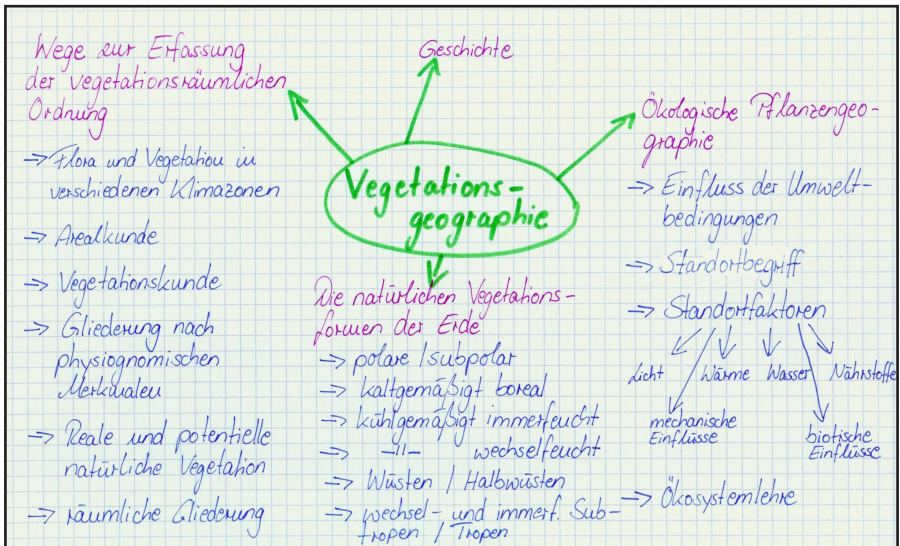 Vegetations-
geographie
Geschichte
Wege zur Erfassung
der vegetationsräumlichen
Ordnung
-> Flora und Vegetation in
verschiedenen Klimazonen
-> Arealkunde
-> Vegetationskunde
-> Gliederung nach
physiognomischen
Merkmalen
-> Reale und potentielle
natürliche Vegetation
-> räumliche Gliederung
Die natürlichen Vegetations-
formen der Erde
-> polare / subpolar
-> kaltgemäßigt boreal
-> kühlgemäßigt immerfeucht
-> -"- wechselfeucht
-> Wüsten / Halbwüsten
-> wechsel- und immerf. Sub-
tropen / Tropen
Ökologische Pflanzengeo-
graphie
-> Einfluss der Umwelt-
bedingungen
-> Standortbegriff
-> Standortfaktoren
Licht Wärme Wasser Nährstoffe
mechanische
Einflüsse
biotische
Einflüsse
-> Ökosystemlehre